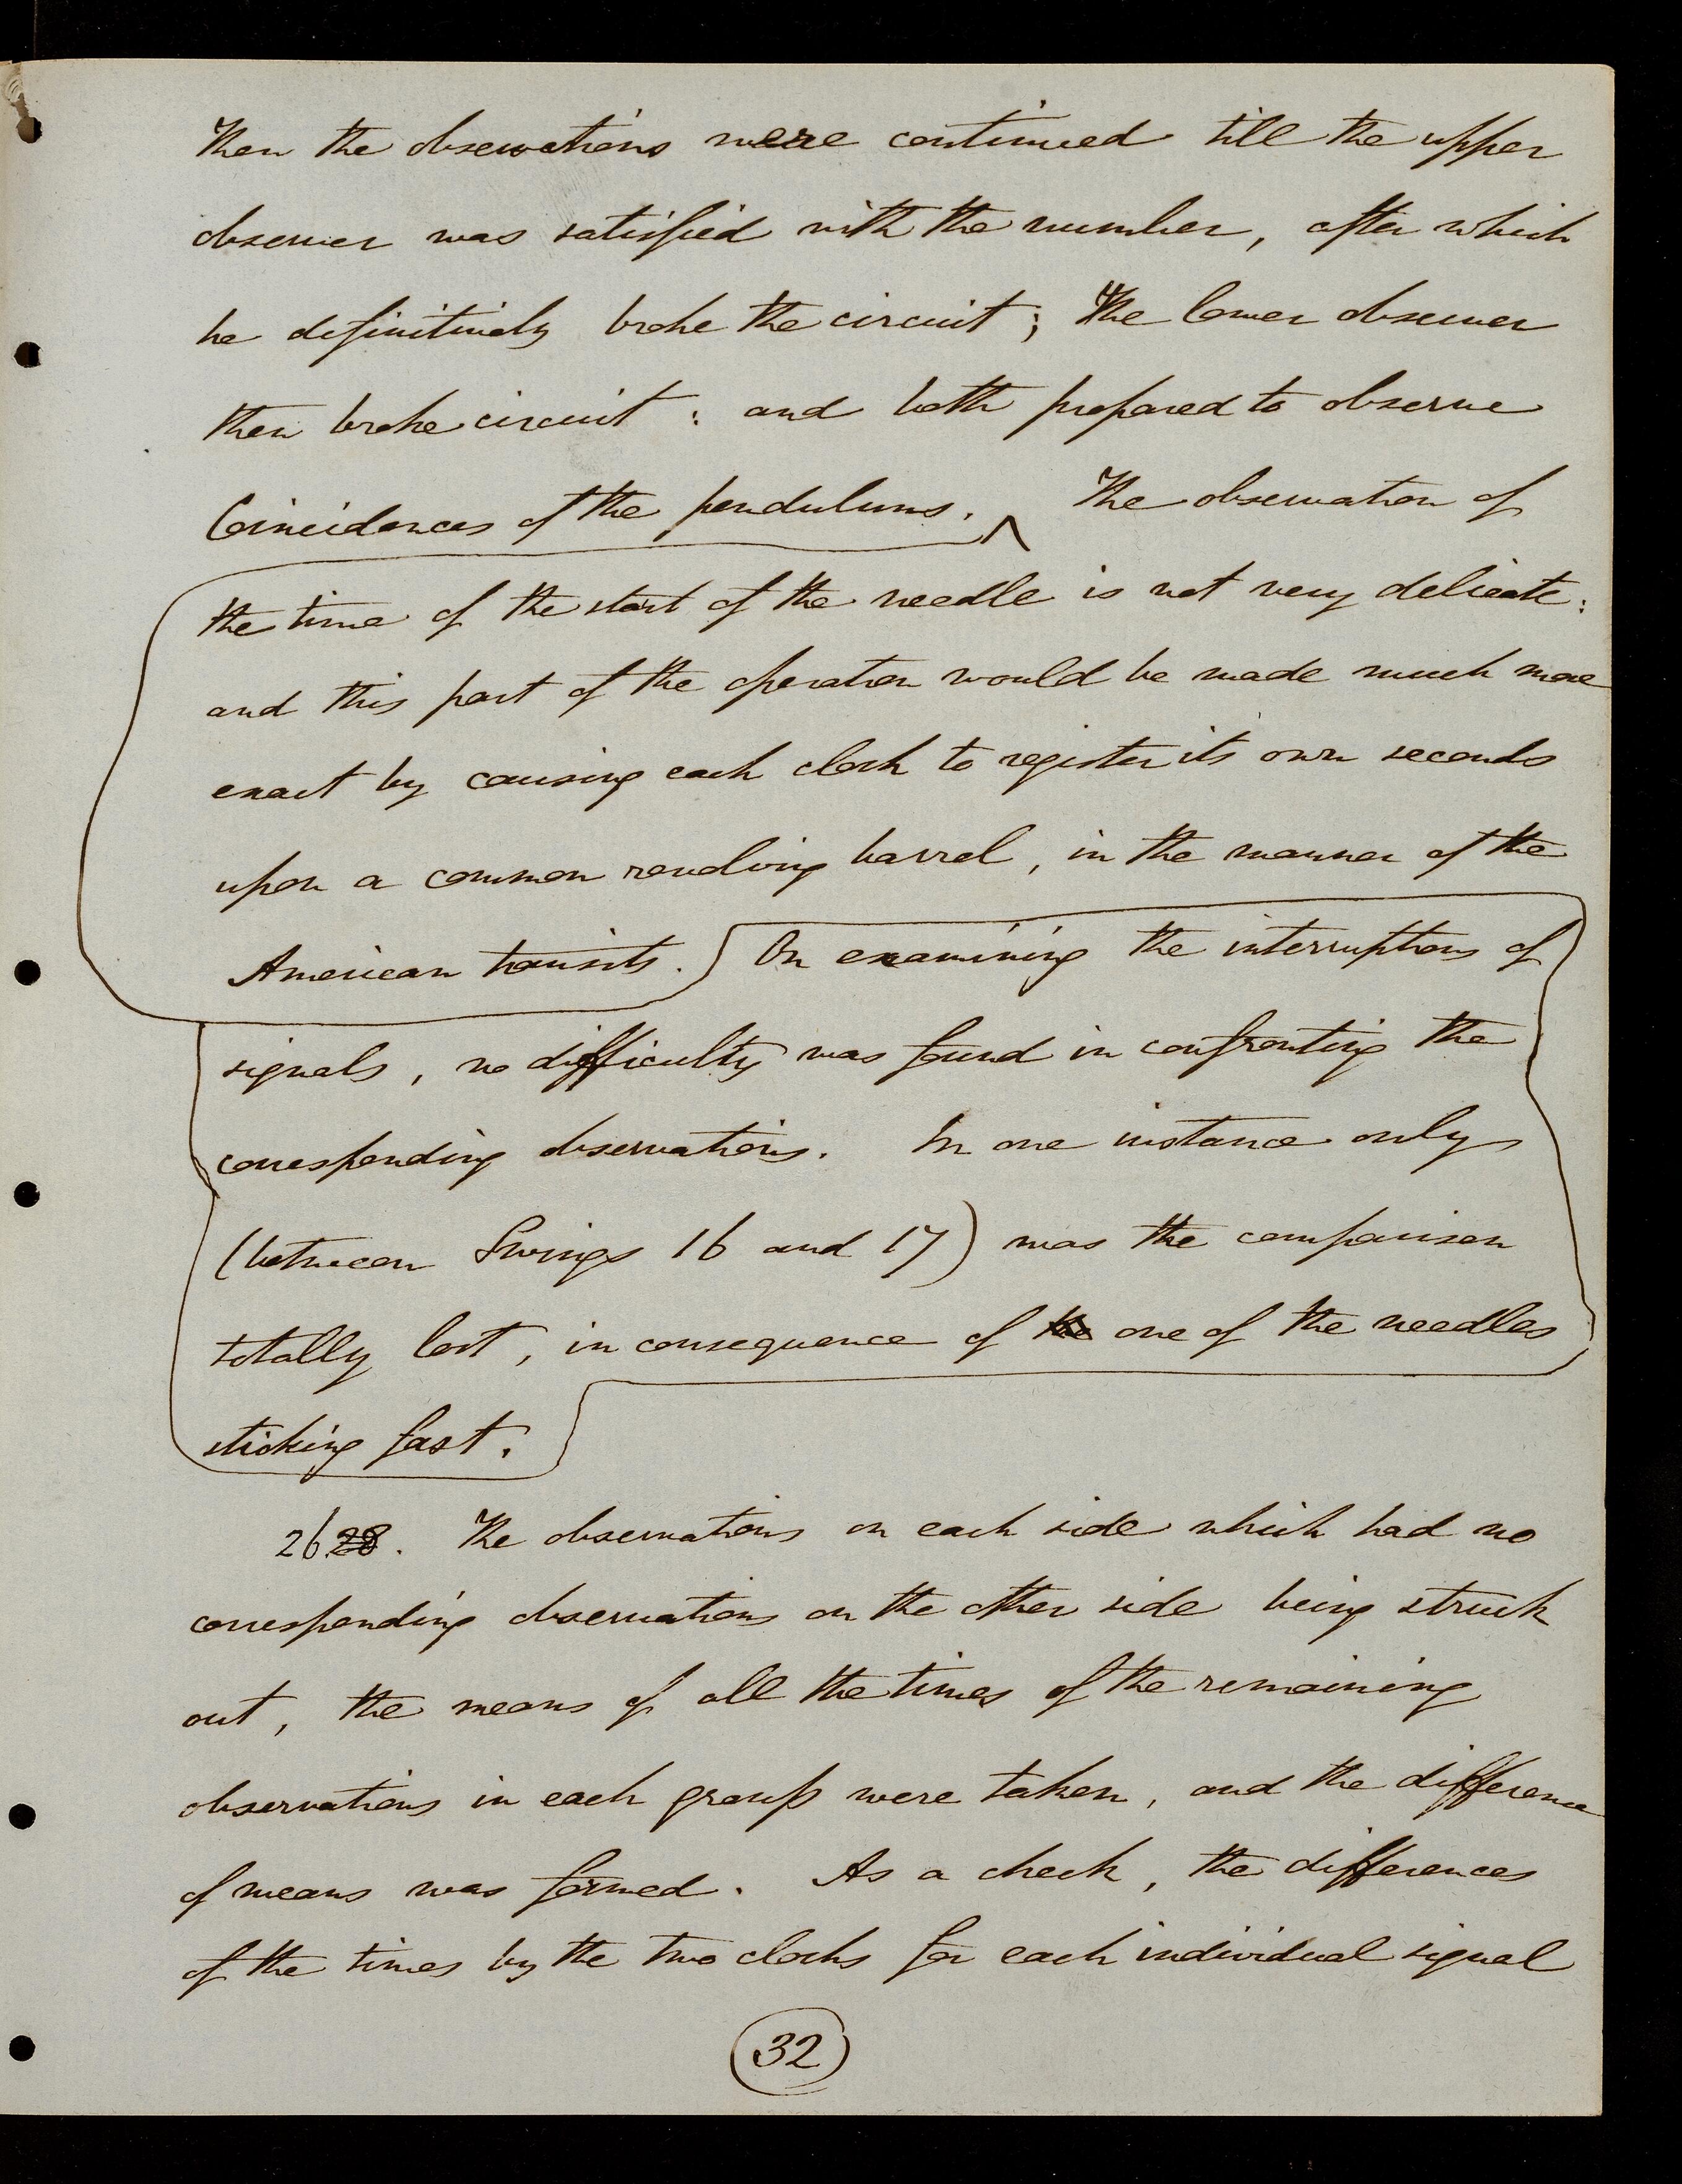 Then the observations were continued till the upper
observer was satisfied with the number, after which
he definitively broke the circuit; The lower observer
then broke circuit: and both prepared to observe
Coincidences of the pendulums. ^ The observation of
the time of the start of the needle is not very delicate:
and this part of the operation would be made much more
exact by causing each clock to register its own seconds
upon a common revolving barrel, in the manner of the
American transits. On examining the interruptions of
signals, no difficulty was found in confronting the
corresponding observations. In one instance only
(between Swings 16 and 17) was the comparison
totally lost, in consequence of the one of the needles
sticking fast.
26. 28. The observations on each side which had no
corresponding observations on the other side being struck
out, the means of all the times of the remaining
observations in each group were taken, and the difference
of means was formed. As a check, the differences
of the times by the two clocks for each individual signal
32